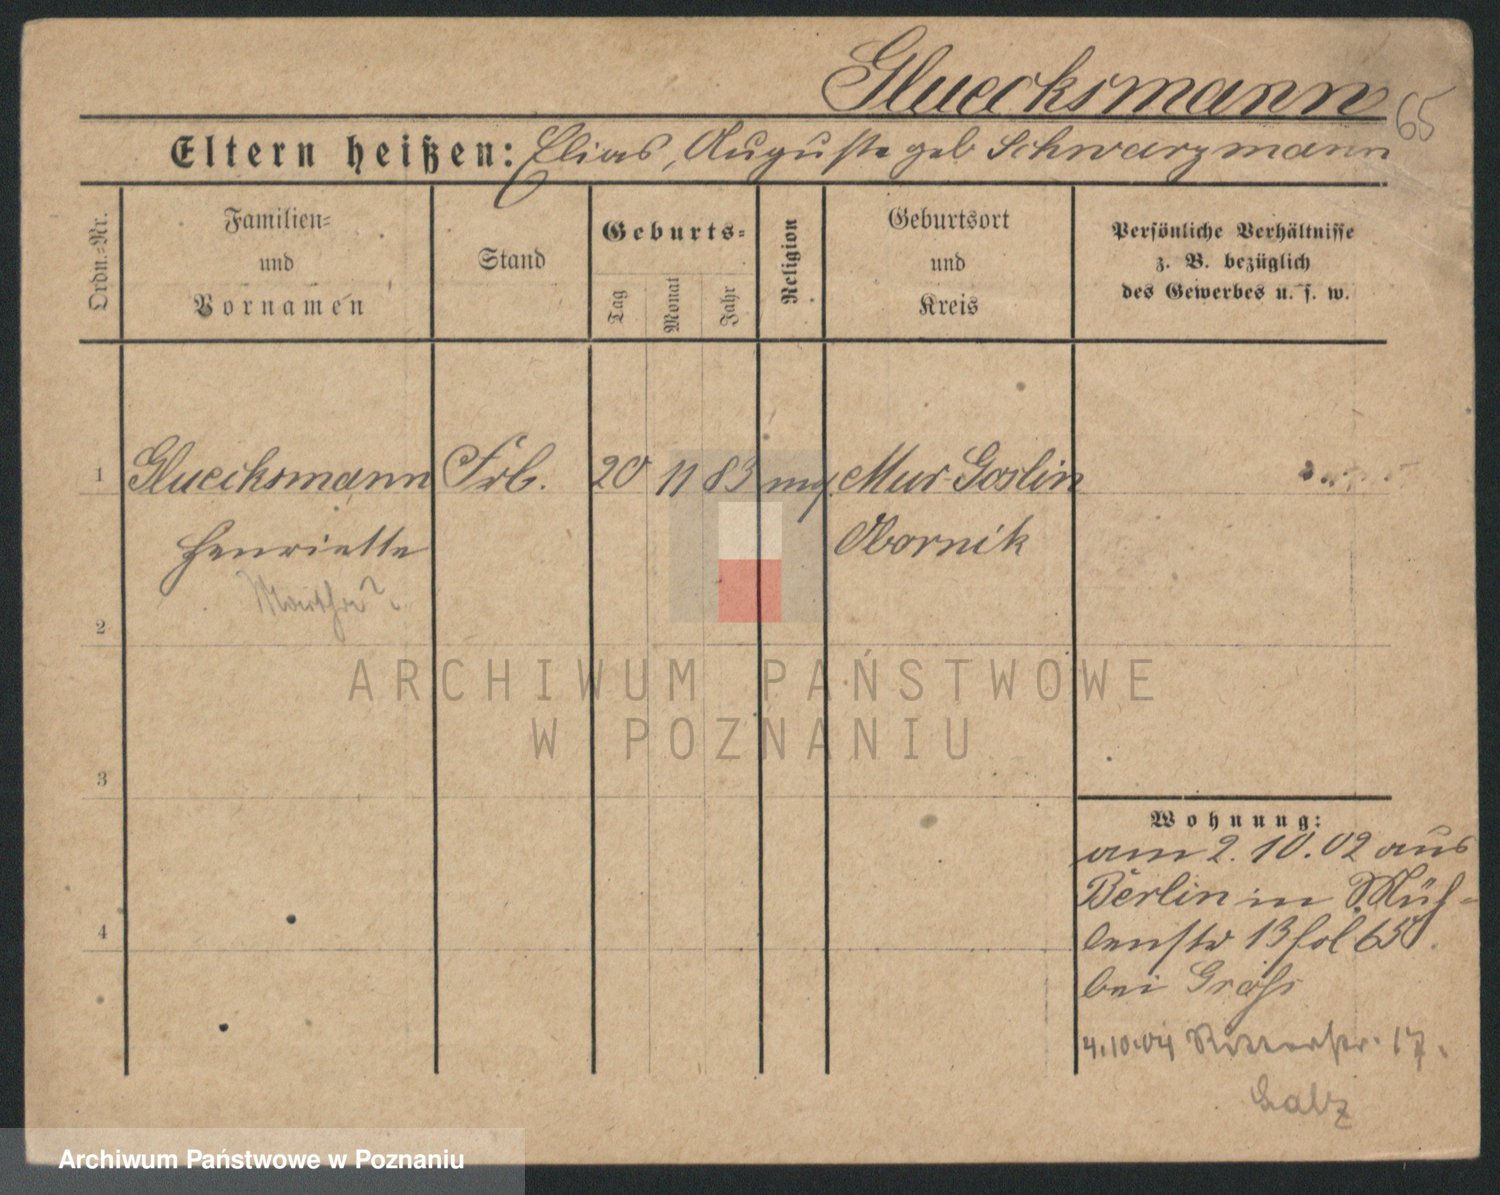 Gluecksmann
65
Eltern heißen: Elias, Auguste geb Schwarzmann
Ordn.-Nr.
Familien-
und
Vornamen
Stand
Geburts-
Tag
Monat
Jahr
Religion
Geburtsort
und
Kreis
Persönliche Verhältnisse
z. B. bezüglich
des Gewerbes u. s. w.
1 Gluecksmann Frl. 20 11 83 Mur-Goslin
Henriette Obornik
2
3
4
Wohnung:
am 2.10.02 aus
Berlin in Müh-
lenstr 13 fol 65.
bei
4.10.04 Ritterstr. 17.
ARCHIWUM PAŃSTWOWE
W POZNANIU
Archiwum Państwowe w Poznaniu